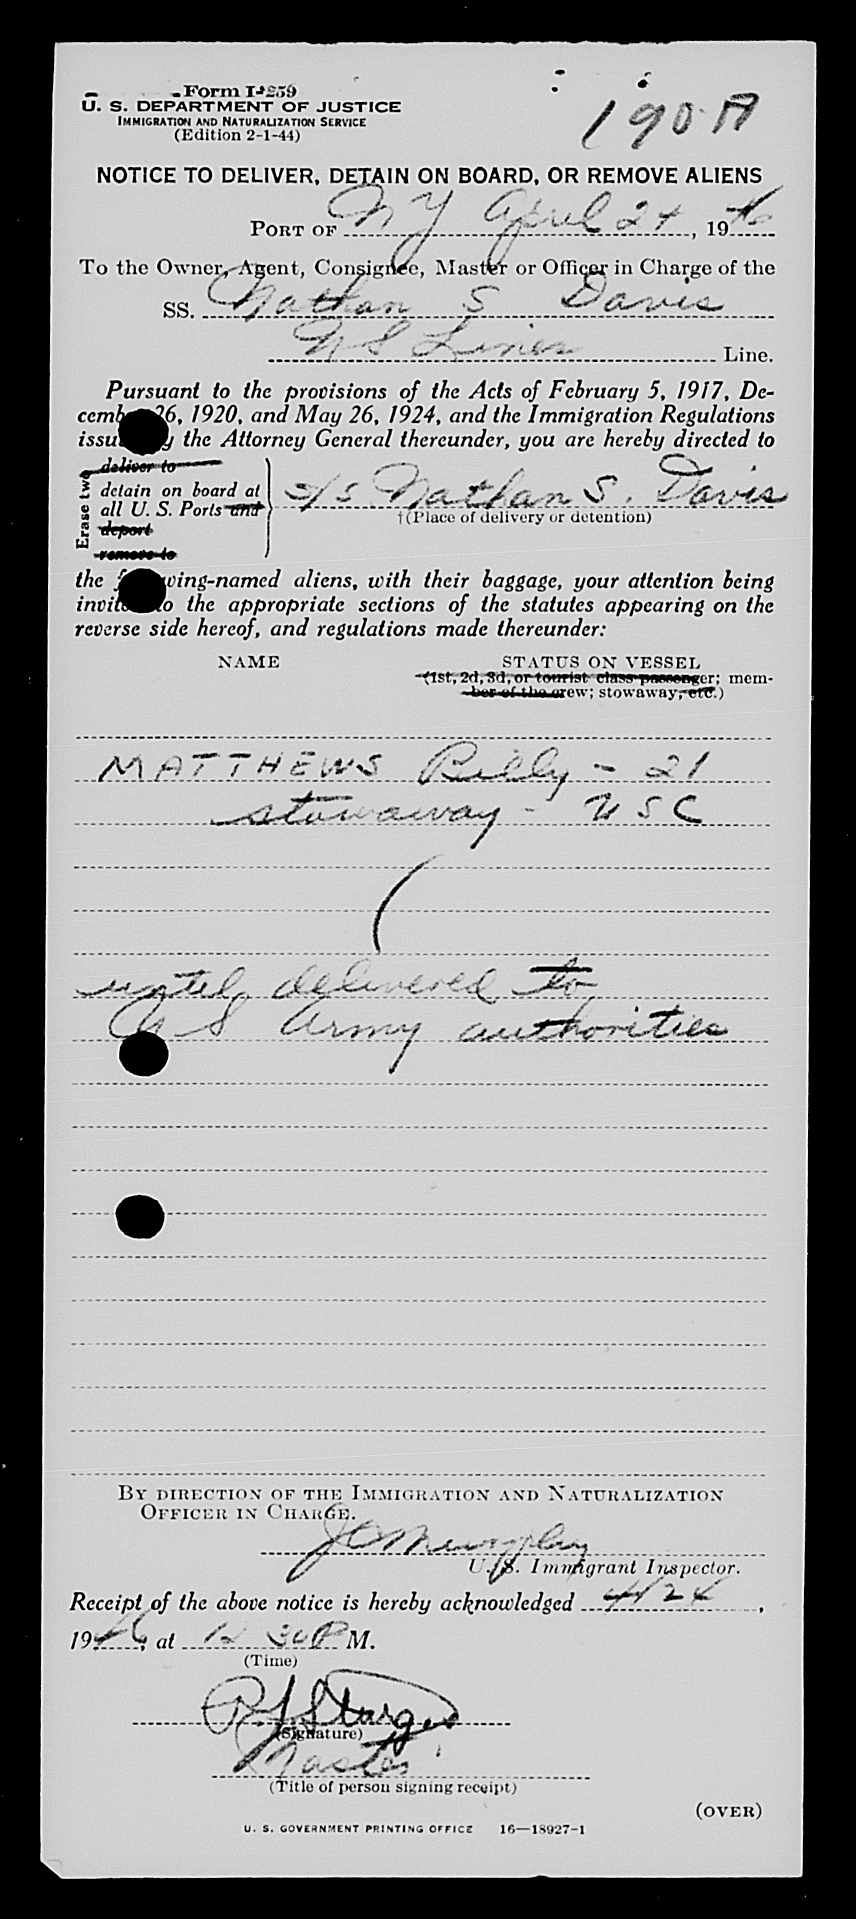 Form I-259
U. S. DEPARTMENT OF JUSTICE
IMMIGRATION AND NATURALIZATION SERVICE
(Edition 2-1-44)
190 A
NOTICE TO DELIVER, DETAIN ON BOARD, OR REMOVE ALIENS
PORT OF NY April 24, 1946
To the Owner, Agent, Consignee, Master or Officer in Charge of the
SS. Nathan S Davis
US Lines Line.
Pursuant to the provisions of the Acts of February 5, 1917, De-
cember 26, 1920, and May 26, 1924, and the Immigration Regulations
issued by the Attorney General thereunder, you are hereby directed to
Erase two
deliver to
detain on board at
all U. S. Ports and
deport
remove to
S/S Nathan S. Davis
†(Place of delivery or detention)
the following-named aliens, with their baggage, your attention being
invited to the appropriate sections of the statutes appearing on the
reverse side hereof, and regulations made thereunder:
NAME STATUS ON VESSEL
(1st, 2d, 3d, or tourist class passenger; mem-
ber of the crew; stowaway, etc.)
MATTHEWS Billy - 21
stowaway - USC
(
until delivered to
US Army authorities
BY DIRECTION OF THE IMMIGRATION AND NATURALIZATION
OFFICER IN CHARGE.
Murphy
U. S. Immigrant Inspector.
Receipt of the above notice is hereby acknowledged 4/24,
1946, at 12 30 P M.
(Time)
Sturges
(Signature)
Master
(Title of person signing receipt)
(OVER)
U. S. GOVERNMENT PRINTING OFFICE 16—18927-1